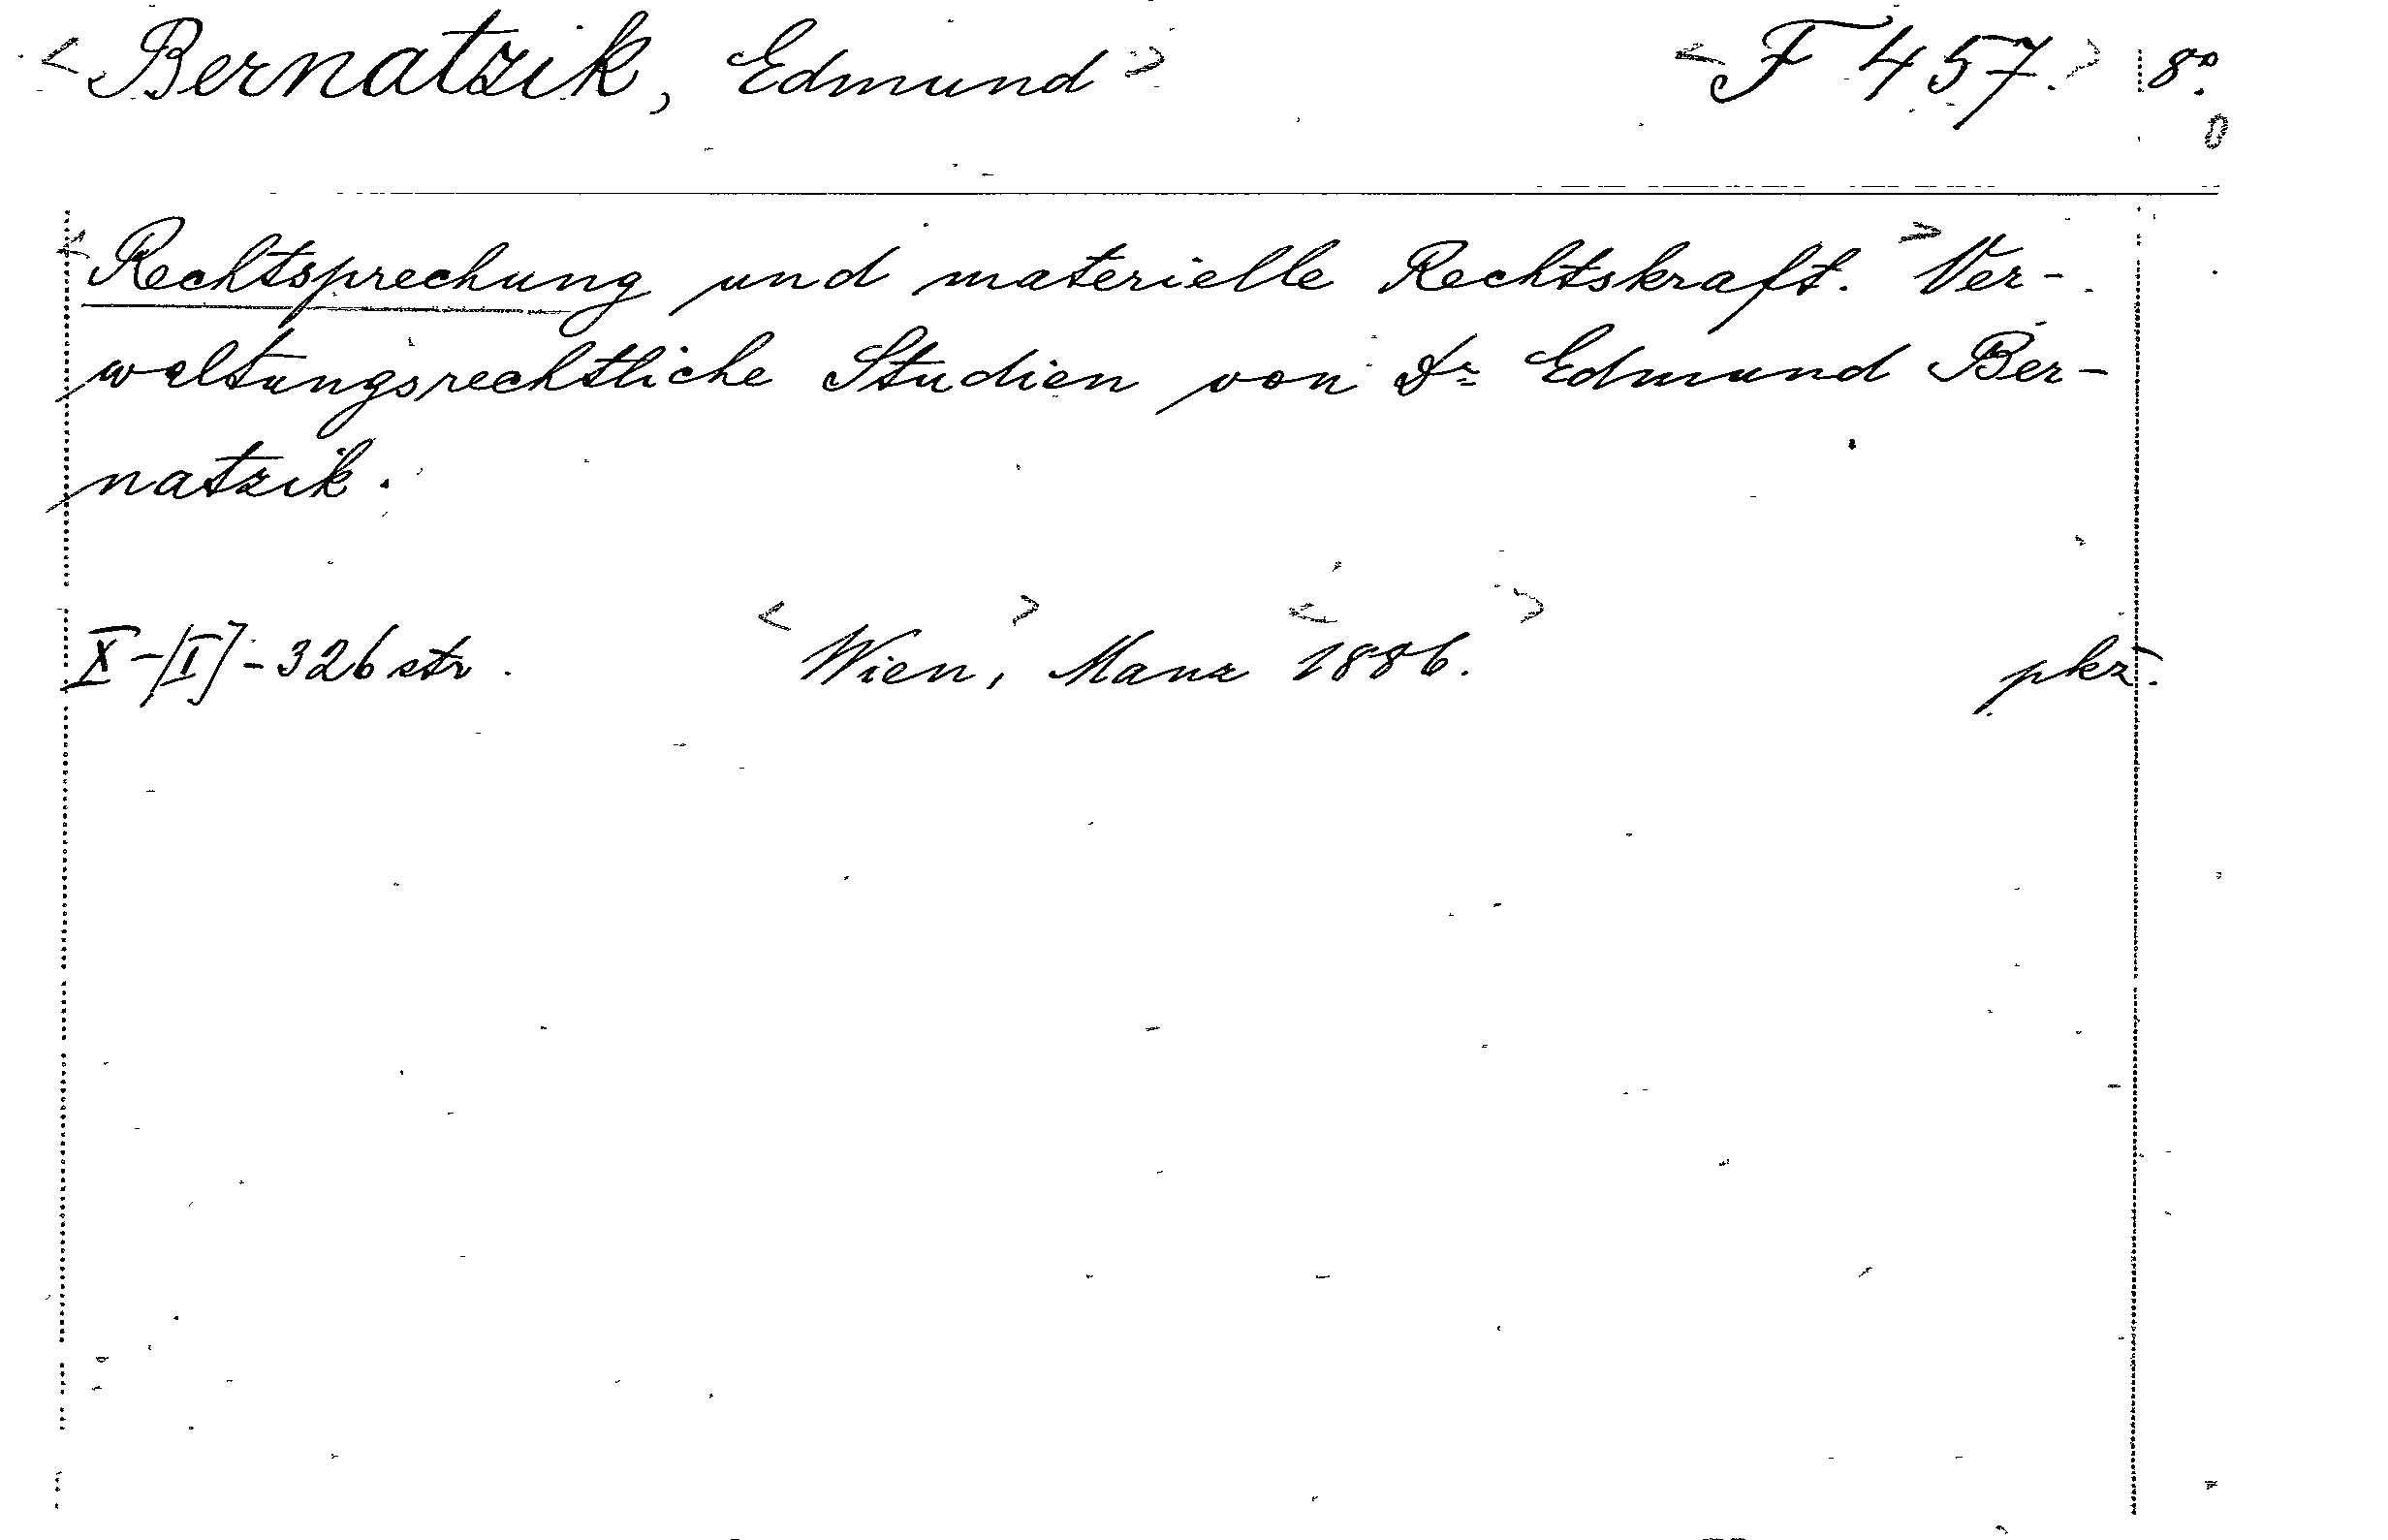 <Bernatzik, Edmund> <F 457.> 8º.
0
<Rechtsprechung und materielle Rechtskraft.> Ver-
waltungsrechtliche Studien von Dr Edmund Ber-
natzik.
X-[I]-326 str. <Wien,> Manz <1886.> pkž.